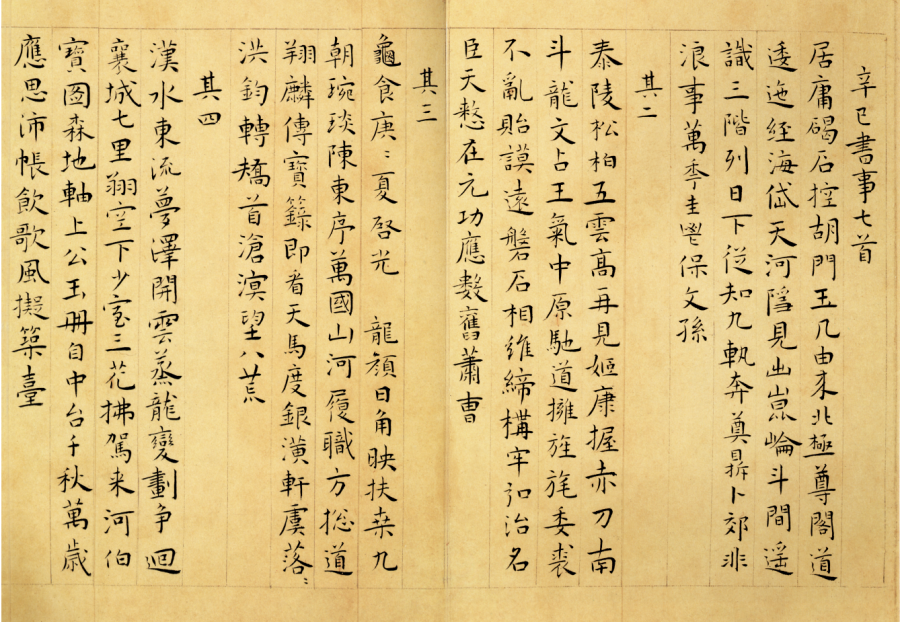 辛巳書事七首
居庸碣石控胡門玉几由來北極尊閣道
逶迤經海岱天河隱見出崑崙斗間遥
識三階列日下從知九軌奔奠鼎卜郊非
浪事萬季圭鬯保文孫
其二
泰陵松柏五雲高再見姬康握赤刀南
斗龍文占王氣中原馳道擁旌旄委裘
不亂貽謨遠磐石相維締構牢引治名
臣天憖在元功應數舊蕭曹
其三
龜食庚〻夏啓光 龍顏日角映扶桒九
朝琬琰陳東序萬國山河履職方捴道
翔麟傳寶籙即看天馬度銀潢軒虞落〻
洪鈞轉矯首滄溟望八荒
其四
漢水東流夢澤開雲蒸龍變劃争迴
襄城七里翔空下少室三花拂駕来河伯
寶圖森地軸上公玉冊自中台千秋萬歲
應思沛帳飲歌風擬築臺